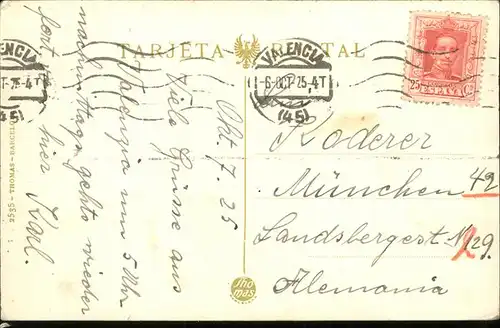 TARJETA POSTAL
VALENCIA
-6.OCT.25.4T
(45)
VALENCIA
(45)
25 Cs
ESPAÑA
Okt. 7. 25
Viele Grüsse aus
Valencia um 5 Uhr
nachmittags gehts wieder
fort hier Karl.
Roderer
München 42
Landsbergerst N 129.
Alemania
2535 - THOMAS - BARCELONA
Tho
mas